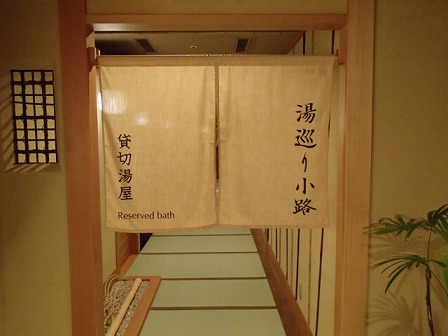 湯巡り小路
貸切湯屋
Reserved bath